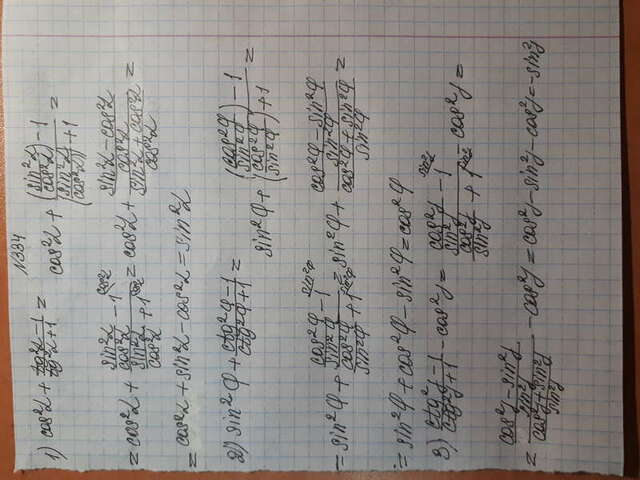 №334
1) cos²α + (tg²α - 1)/(tg²α + 1) = cos²α + ((sin²α/cos²α) - 1)/((sin²α/cos²α) + 1) =
= cos²α + (sin²α/cos²α - 1^cos²)/(sin²α/cos²α + 1^cos²) = cos²α + ((sin²α - cos²α)/cos²α)/((sin²α + cos²α)/cos²α) =
= cos²α + sin²α - cos²α = sin²α
2) sin²φ + (ctg²φ - 1)/(ctg²φ + 1) = sin²φ + ((cos²φ/sin²φ) - 1)/((cos²φ/sin²φ) + 1) =
= sin²φ + (cos²φ/sin²φ - 1^sin²φ)/(cos²φ/sin²φ + 1^sin²φ) = sin²φ + ((cos²φ - sin²φ)/sin²φ)/((cos²φ + sin²φ)/sin²φ) =
= sin²φ + cos²φ - sin²φ = cos²φ
3) (ctg²y - 1)/(ctg²y + 1) - cos²y = (cos²y/sin²y - 1^sin²y)/(cos²y/sin²y + 1^sin²) - cos²y =
= ((cos²y - sin²y)/sin²y)/((cos²y + sin²y)/sin²y) - cos²y = cos²y - sin²y - cos²y = -sin²y